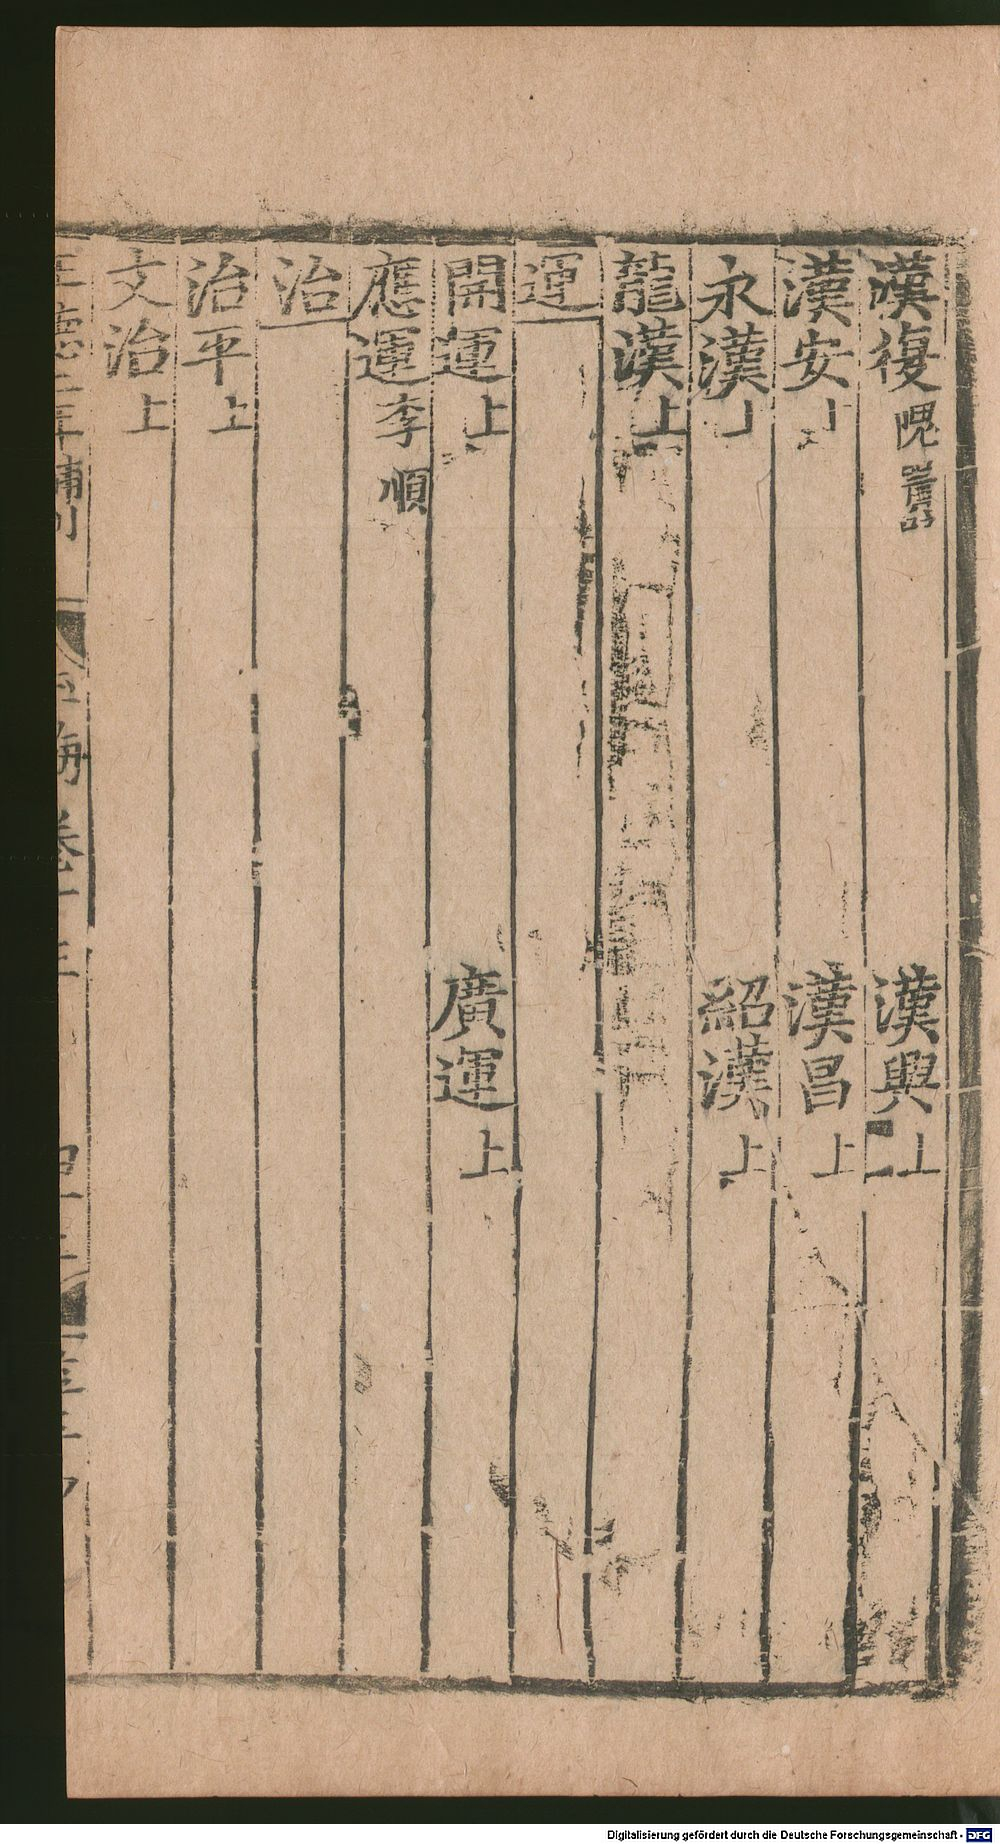 漢復 隗囂 漢興 上
漢安 上 漢昌 上
永漢 上 紹漢 上
龍漢 上
運
開運 上 廣運 上
應運 李順
治
治平 上
文治 上
Digitalisierung gefördert durch die Deutsche Forschungsgemeinschaft - DFG